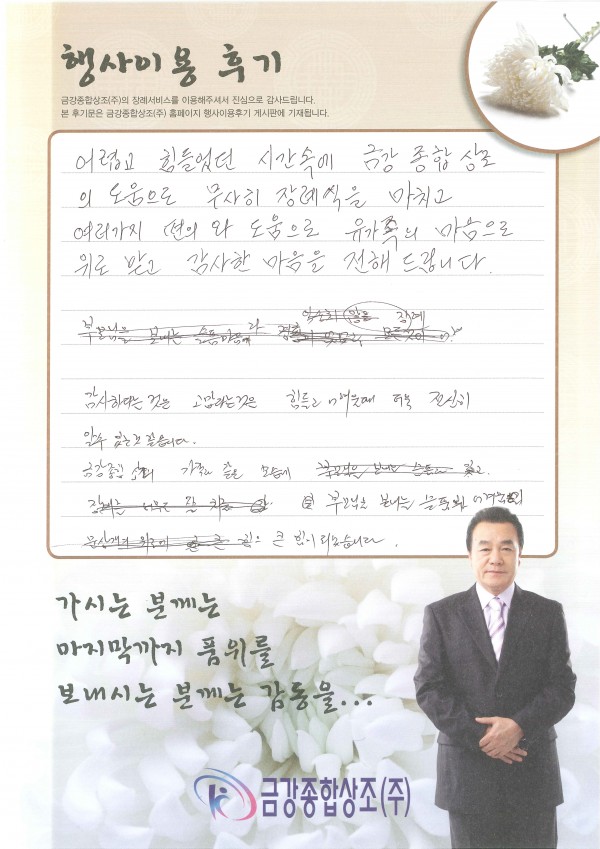 행사이용 후기
금강종합상조(주)의 장례서비스를 이용해주셔서 진심으로 감사드립니다.
본 후기문은 금강종합상조(주) 홈페이지 행사이용후기 게시판에 기재됩니다.
어렵고 힘들었던 시간속에 금강 종합 상조
의 도움으로 무사히 장례식을 마치고
여러가지 편의 와 도움으로 유가족의 마음으로
위로 받고 감사한 마음을 전해 드립니다.
부모님을 보내는 슬픔마음에
장례
감사하다는것은 고맙다는것은 힘들고 어려울때 더욱 진심히
알수 있는것 같습니다.
금강종합 상조 가족같은 모습에
부모님을 보내는 슬픔과
큰 힘이 되었습니다.
가시는 분께는
마지막까지 품위를
보내시는 분께는 감동을...
금강종합상조(주)